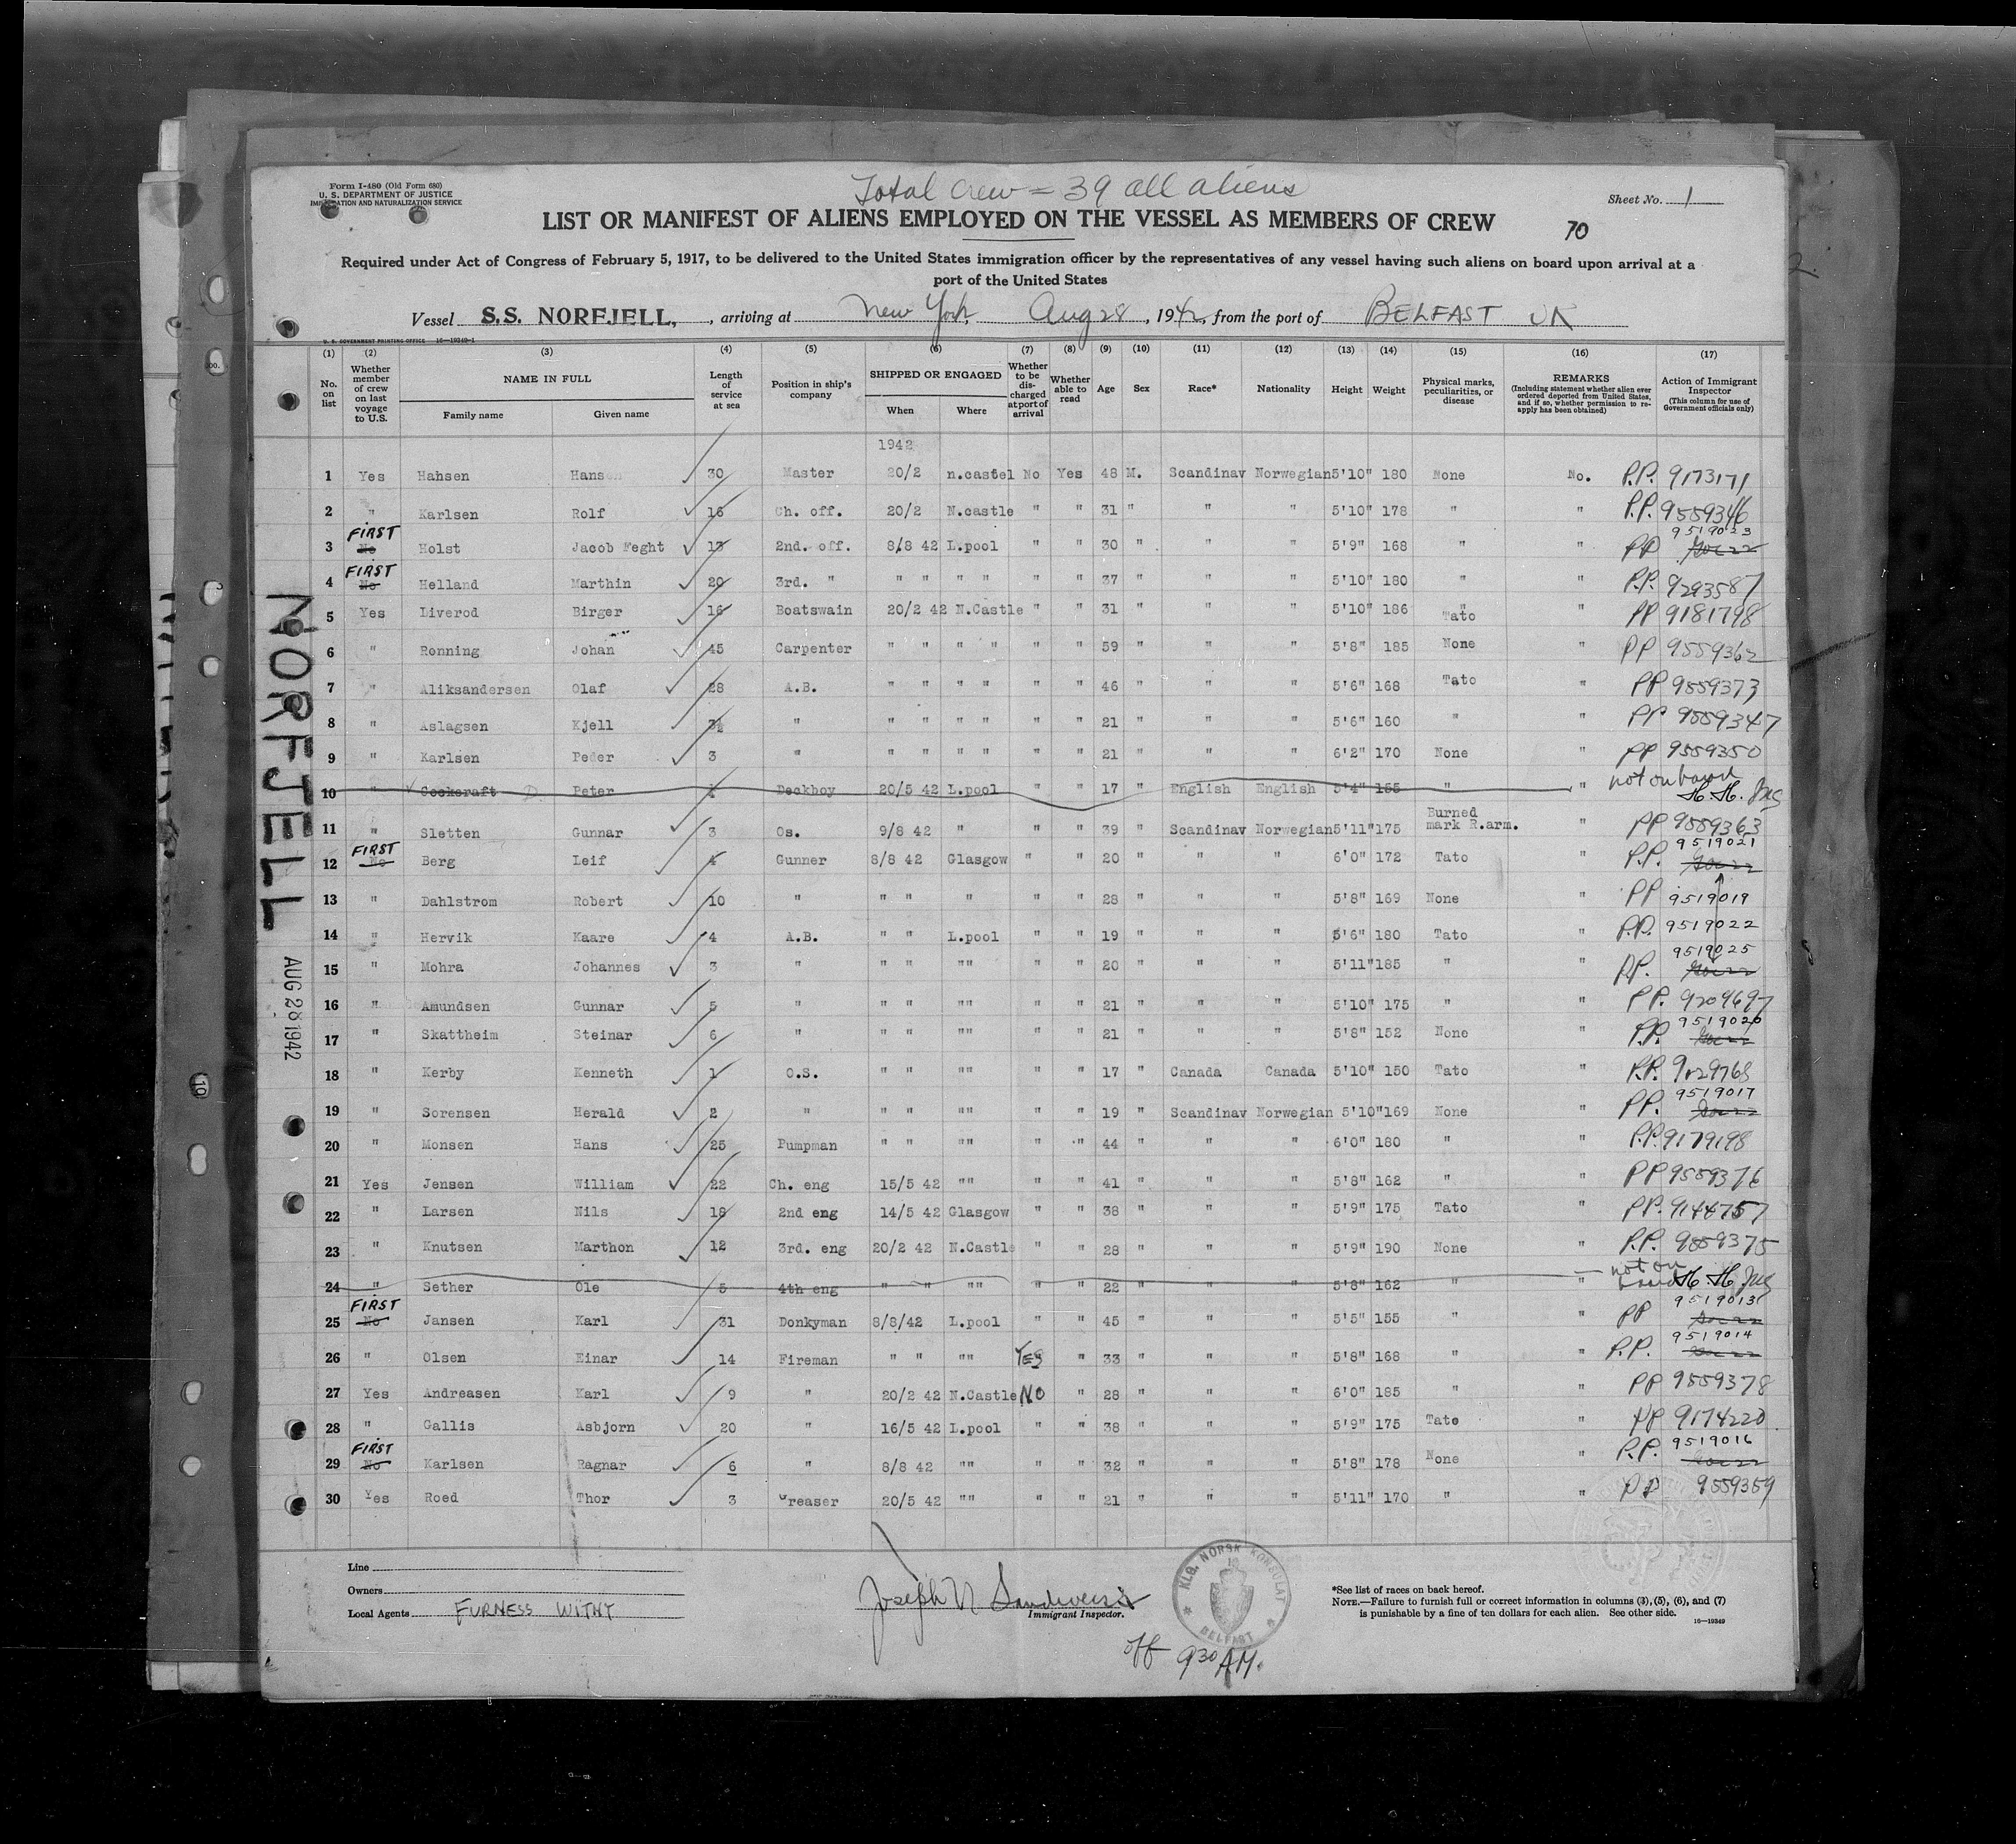 Form I-480 (Old Form 680)
U. S. DEPARTMENT OF JUSTICE
IMMIGRATION AND NATURALIZATION SERVICE
Total Crew = 39 all aliens
Sheet No. 1
LIST OR MANIFEST OF ALIENS EMPLOYED ON THE VESSEL AS MEMBERS OF CREW
70
Required under Act of Congress of February 5, 1917, to be delivered to the United States immigration officer by the representatives of any vessel having such aliens on board upon arrival at a
port of the United States
Vessel S.S. NORFJELL, , arriving at New York, Aug 28, 1942, from the port of BELFAST UK
U. S. GOVERNMENT PRINTING OFFICE 16—19349-1
(1) (2) (3) (4) (5) (6) (7) (8) (9) (10) (11) (12) (13) (14) (15) (16) (17)
No. on list
Whether member of crew on last voyage to U.S.
NAME IN FULL
Family name Given name
Length of service at sea
Position in ship's company
SHIPPED OR ENGAGED
When Where
Whether to be discharged at port of arrival
Whether able to read
Age
Sex
Race*
Nationality
Height
Weight
Physical marks, peculiarities, or disease
REMARKS
(Including statement whether alien ever ordered deported from United States, and if so, whether permission to reapply has been obtained)
Action of Immigrant Inspector
(This column for use of Government officials only)
1942
1 Yes Hahsen Hansen 30 Master 20/2 n.castel No Yes 48 M. Scandinav Norwegian 5'10" 180 None No. P.P. 9173171
2 " Karlsen Rolf 16 Ch. off. 20/2 N.castle " " 31 " " " 5'10" 178 " " P.P. 9559346
3 No FIRST Holst Jacob Feght 13 2nd. off. 8/8 42 L.pool " " 30 " " " 5'9" 168 " " PP 9519023
4 No FIRST Helland Marthin 20 3rd. " " " " " " " 37 " " " 5'10" 180 " " P.P. 9293587
5 Yes Liverod Birger 16 Boatswain 20/2 42 N.Castle " " 31 " " " 5'10" 186 " Tato " PP 9181798
6 " Ronning Johan 45 Carpenter " " " " " " 59 " " " 5'8" 185 None " PP 9559362
7 " Aliksandersen Olaf 28 A.B. " " " " " " 46 " " " 5'6" 168 Tato " PP 9559373
8 " Aslagsen Kjell 3½ " " " " " " " 21 " " " 5'6" 160 " " PP 9559347
9 " Karlsen Peder 3 " " " " " " " 21 " " " 6'2" 170 None " PP 9559350
10 " Cockcraft D Peter Deckboy 20/5 42 L.pool " " 17 " English English 5'4" 155 " " not on board H. H. Ins
11 " Sletten Gunnar 3 Os. 9/8 42 " " " 39 " Scandinav Norwegian 5'11" 175 Burned mark R.arm. " PP 9559363
12 No FIRST Berg Leif 4 Gunner 8/8 42 Glasgow " " 20 " " " 6'0" 172 Tato " P.P. 9519021
13 " Dahlstrom Robert 10 " " " " " " 28 " " " 5'8" 169 None " PP 9519019
14 " Hervik Kaare 4 A.B. " " L.pool " " 19 " " " 5'6" 180 Tato " P.P. 9519022
15 " Mohra Johannes 3 " " " "" " " 20 " " " 5'11" 185 " " PP. 9519025
16 " Amundsen Gunnar 5 " " " "" " " 21 " " " 5'10" 175 " " PP. 9209697
17 " Skattheim Steinar 6 " " " "" " " 21 " " " 5'8" 152 None " P.P. 9519020
18 " Kerby Kenneth 1 O.S. " " "" " " 17 " Canada Canada 5'10" 150 Tato " P.P. 9129768
19 " Sorensen Herald 2 " " " "" " " 19 " Scandinav Norwegian 5'10" 169 None " PP. 9519017
20 " Monsen Hans 25 Pumpman " " "" " " 44 " " " 6'0" 180 " " P.P. 9179198
21 Yes Jensen William 22 Ch. eng 15/5 42 "" " " 41 " " " 5'8" 162 " " PP 9559376
22 " Larsen Nils 18 2nd eng 14/5 42 Glasgow " " 38 " " " 5'9" 175 Tato " PP. 9144757
23 " Knutsen Marthon 12 3rd. eng 20/2 42 N.Castle " " 28 " " " 5'9" 190 None " P.P. 9559375
24 " Sether Ole 5 4th eng " " "" " " 22 " " " 5'8" 162 " " not on board H. H. Ins
25 No FIRST Jansen Karl 31 Donkyman 8/8/42 L.pool " " 45 " " " 5'5" 155 " " PP 9519013
26 " Olsen Einar 14 Fireman " " "" YES " 33 " " " 5'8" 168 " " P.P. 9519014
27 Yes Andreasen Karl 9 " 20/2 42 N.Castle NO " 28 " " " 6'0" 185 " " PP 9559378
28 " Gallis Asbjorn 20 " 16/5 42 L.pool " " 38 " " " 5'9" 175 Tato " PP 9174220
29 No FIRST Karlsen Ragnar 6 " 8/8 42 "" " " 32 " " " 5'8" 178 None " P.P. 9519016
30 Yes Roed Thor 3 Greaser 20/5 42 "" " " 21 " " " 5'11" 170 " " PP 9559359
NORFJELL
AUG 28 1942
Line
Owners
Local Agents FURNESS WITHY
Immigrant Inspector.
KLG. NORSK KONSULAT
BELFAST
off 9 30 A.M.
*See list of races on back hereof.
NOTE.—Failure to furnish full or correct information in columns (3), (5), (6), and (7)
is punishable by a fine of ten dollars for each alien. See other side.
16—19349